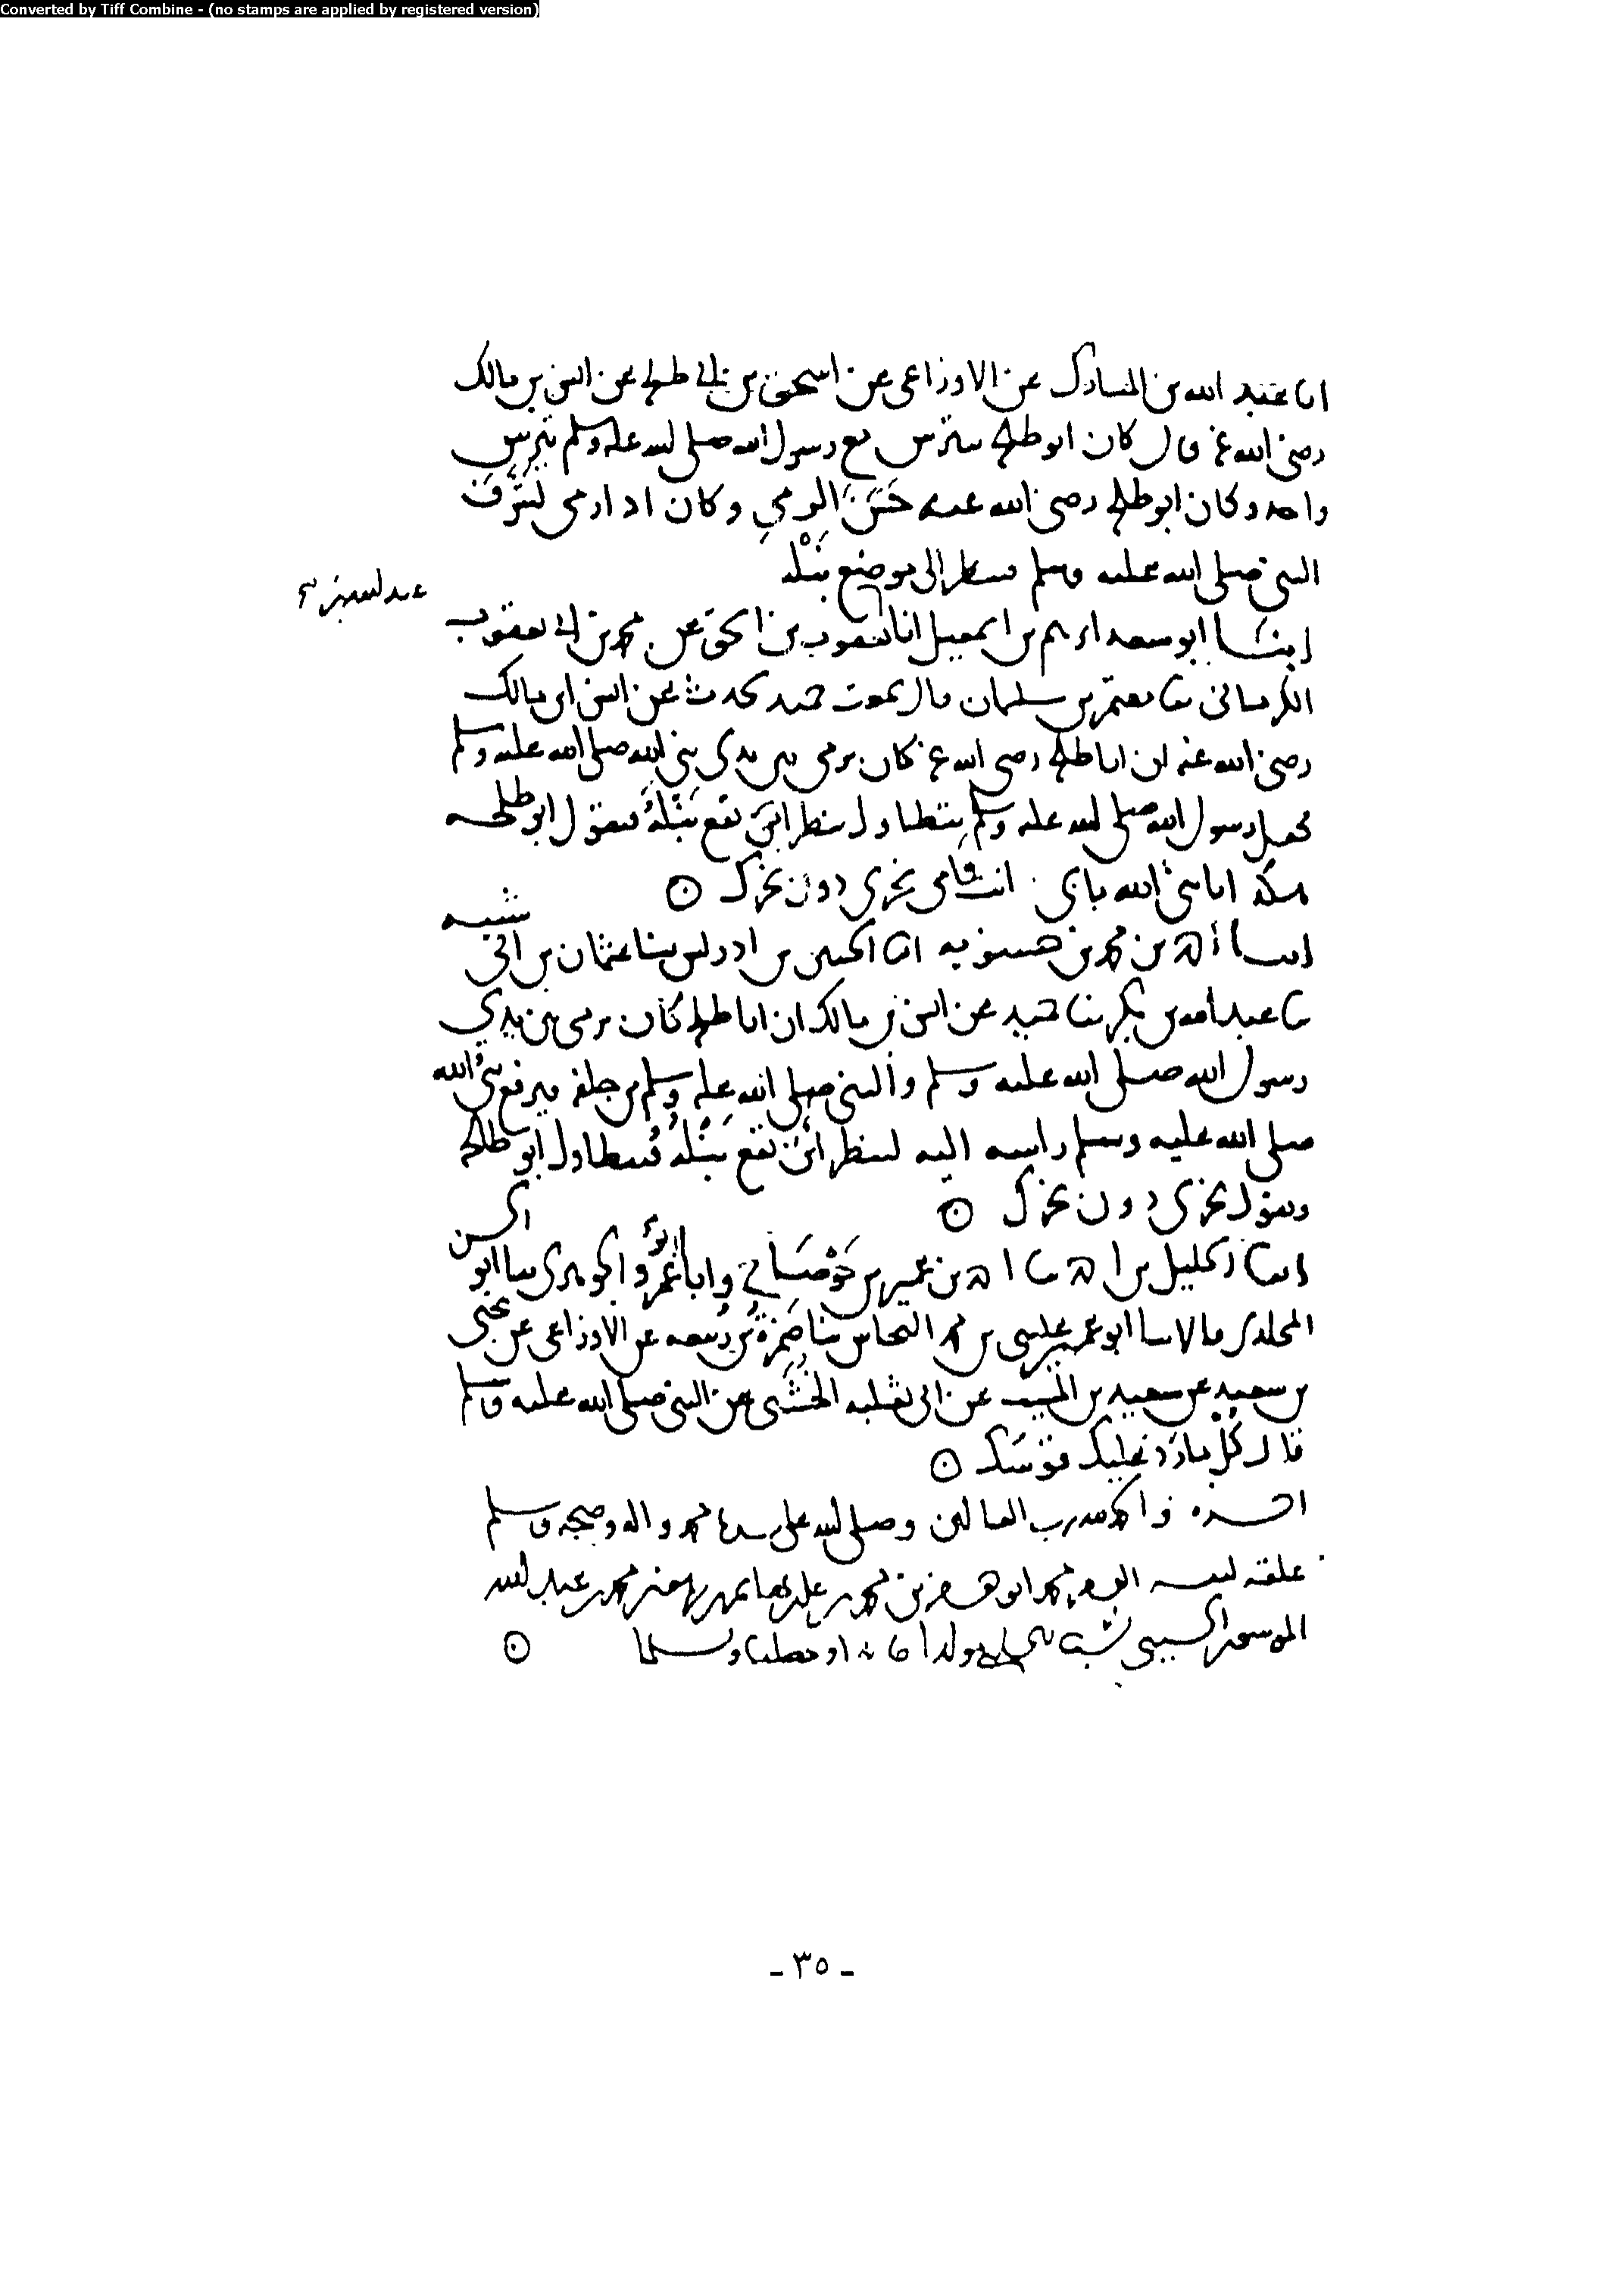 Converted by Tiff Combine - (no stamps are applied by registered version)
انا عبد الله بن المبارك عن الاوزاعي عن اسحق بن ابي طلحه عن انس بن مالك
رضي الله عنه قال كان ابو طلحه يترس مع رسول الله صلى الله عليه وسلم بترس
واحد وكان ابو طلحه رضي الله عنه حسن الرمي وكان اذا رمى لتشرف
النبي صلى الله عليه وسلم فينظر الى موضع نبله
انبانا ابو سعد ابرهيم بن اسمعيل انا يعقوب بن اسحق عن محمد بن ابي يعقوب
الكرماني ثنا معتمر بن سليمان قال سمعت حميد يحدث عن انس ابن مالك
رضي الله عنه ان ابا طلحه رضي الله عنه كان يرمي بين يدي نبي الله صلى الله عليه وسلم
فجعل رسول الله صلى الله عليه وسلم يتطاول ينظر اين تقع نبله فيقول ابو طلحه
هكذا يا نبي الله بابي انت وامي نحري دون نحرك
انبانا احمد بن محمد بن حسنويه انا الحسين بن ادريس ثنا عثمان بن ابي شيبه
ثنا عبد الله بن بكر ثنا حميد عن انس بن مالك ان ابا طلحه كان يرمي بين يدي
رسول الله صلى الله عليه وسلم والنبي صلى الله عليه وسلم من خلفه فيرفع نبي الله
صلى الله عليه وسلم راسه اليه لينظر اين تقع نبله فيتطاول ابو طلحه
ويقول نحري دون نحرك
انبانا الخليل بن احمد ثنا احمد بن عمير بن جوصا وابنا ابو عمرو الحيري ثنا ابو الحسن
المخلدي قالا ثنا ابو عمير عيسى بن محمد النحاس ثنا ضمرة بن ربيعه عن الاوزاعي عن يحيى
بن سعيد عن سعيد بن المسيب عن ابي ثعلبه الخشني عن النبي صلى الله عليه وسلم
قال كل ما رد عليك قوسك
اخره والحمد لله رب العالمين وصلى الله على سيدنا محمد واله وصحبه وسلم
علقه لنفسه محمد بن محمد بن عبد الله
- ٣٥ -